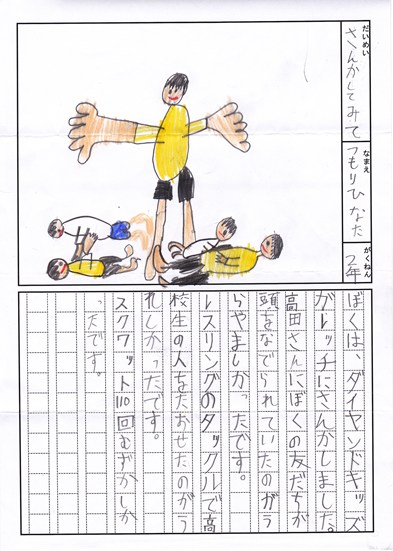 だいめい
さんかしてみて
なまえ
つもりひなた
がくねん
2年
ぼくは、ダイヤンドキッズ
がレッチにさんかしました。
高田さんにぼくの友だちが
頭をなでられていたのがう
らやましかったです。
レスリングのタックルで高
校生の人をたおせたのがう
れしかったです。
スクワット110回むずかしか
ったです。